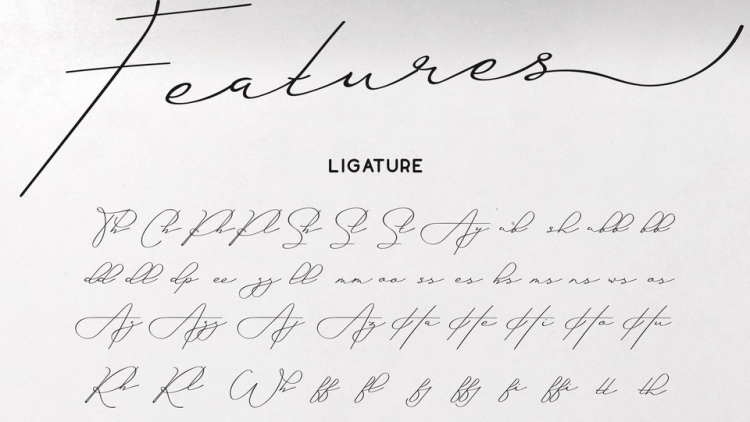 Features
LIGATURE
Th Ch Ph Pl Sh Sl St Ay ub sh ubb bb
dd dll dp ee zz ll mm oo ss es hs ms ns ws os
Az Azz Aj Ag Ha He Hi Ho Hu
Rh Rl Wh ff fl fj ffj fi ffi tt th